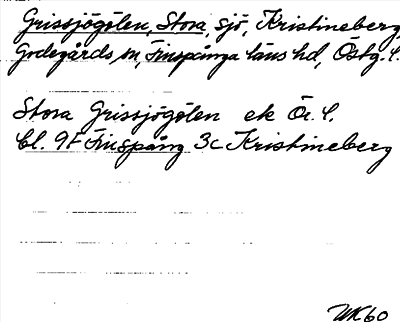 Grissjögölen, Stora, sjö, Kristineberg,
Godegårds sn, Finspånga läns hd, Östg. l.
Stora Grissjögölen ek Ör. l.
Bl. 9F Finspång 3c Kristineberg
UK60